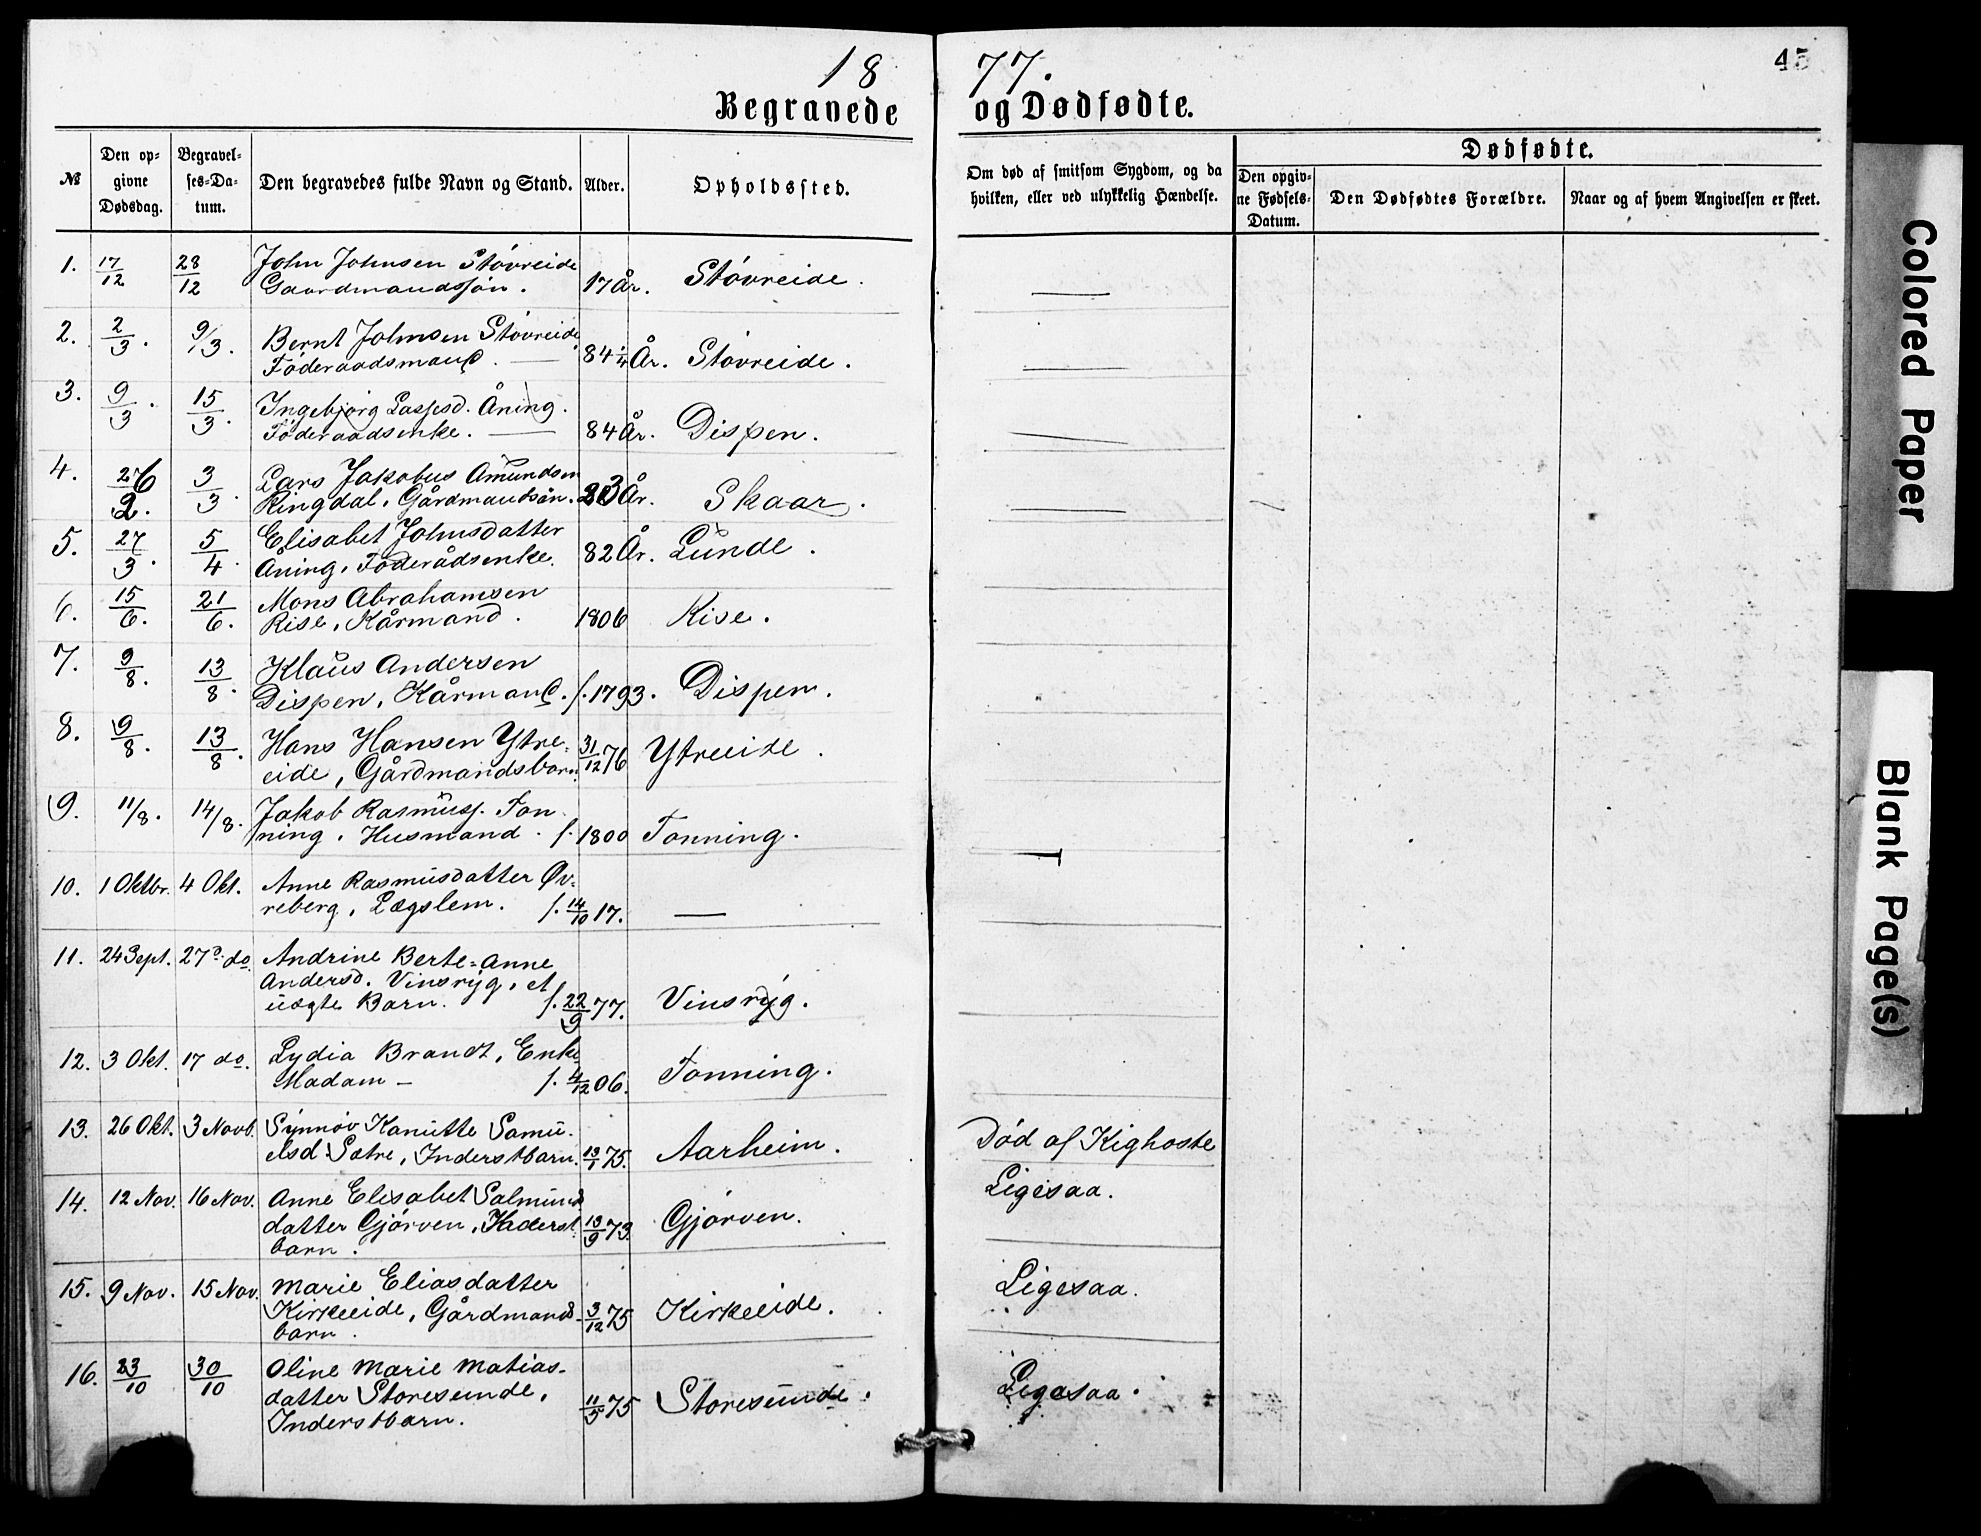 18 77.
45
Begravede og Dødfødte.
№
Den op-
givne
Dødsdag.
Begravel-
ses-Da-
tum.
Den begravedes fulde Navn og Stand.
Alder.
Opholdssted.
Om død af smitsom Sygdom, og da
hvilken, eller ved ulykkelig Hændelse.
Dødfødte.
Den opgiv-
ne Fødsels-
Datum.
Den Dødfødtes Forældre.
Naar og af hvem Angivelsen er skeet.
1. 17/12 28/12 John Johnsen Støvreide
Gaardmandssøn. 17 År. Støvreide.
2. 2/3. 9/3. Bernt Johnsen Støvreide
Føderaadsmand. 84 1/4 År. Støvreide.
3. 9/3. 15/3. Ingebjørg Lassesd. Åning.
Føderaadsenke. 84 År. Dispen.
4. 26/2. 3/3. Lars Jakobus Amundsen
Ringdal, Gårdmandsøn. 23 År. Skaar.
5. 27/3. 5/4. Elisabet Johnsdatter
Åning, Føderådsenke. 82 År. Lunde.
6. 15/6. 21/6. Mons Abrahamsen
Rise, Kårmand. 1806 Rise.
7. 9/8. 13/8. Klaus Andersen
Dispen, Kårmand. f. 1793. Dispen.
8. 9/8. 13/8. Hans Hansen Ytre-
eide, Gårdmandsbarn. 31/12 76 Ytreeide.
9. 11/8. 14/8. Jakob Rasmuss. Ton-
ning, Husmand. f. 1800 Tonning.
10. 1 Oktbr. 4 Okt. Anne Rasmusdatter Øv-
reberg, Lægslem. f. 14/10 17. —
11. 24 Sept. 27 do. Andrine Berte-Anne
Andersd. Vinsryg, et
uægte Barn. f. 22/9 77. Vinsryg.
12. 3 Okt. 17 do. Lydia Brandt, Enke
Madam — f. 4/12 06. Tonning.
13. 26 Okt. 3 Novb. Synnøv Kanutte Samu-
elsd Sætre, Inderstbarn. 13/1 75. Aarheim. Død af Kighoste
14. 12 Nov. 16 Nov. Anne Elisabet Salmund
datter Gjørven, Inderst
barn. 13/9 73. Gjørven. Ligesaa.
15. 9 Nov. 15 Nov. Marie Eliasdatter
Kirkeeide, Gårdmands-
barn. 3/12 75 Kirkeeide. Ligesaa.
16. 23/10 30/10 Oline Marie Matias-
datter Storesunde,
Inderstbarn. 11/5 75 Storesunde. Ligesaa.
Colored Paper
Blank Page(s)